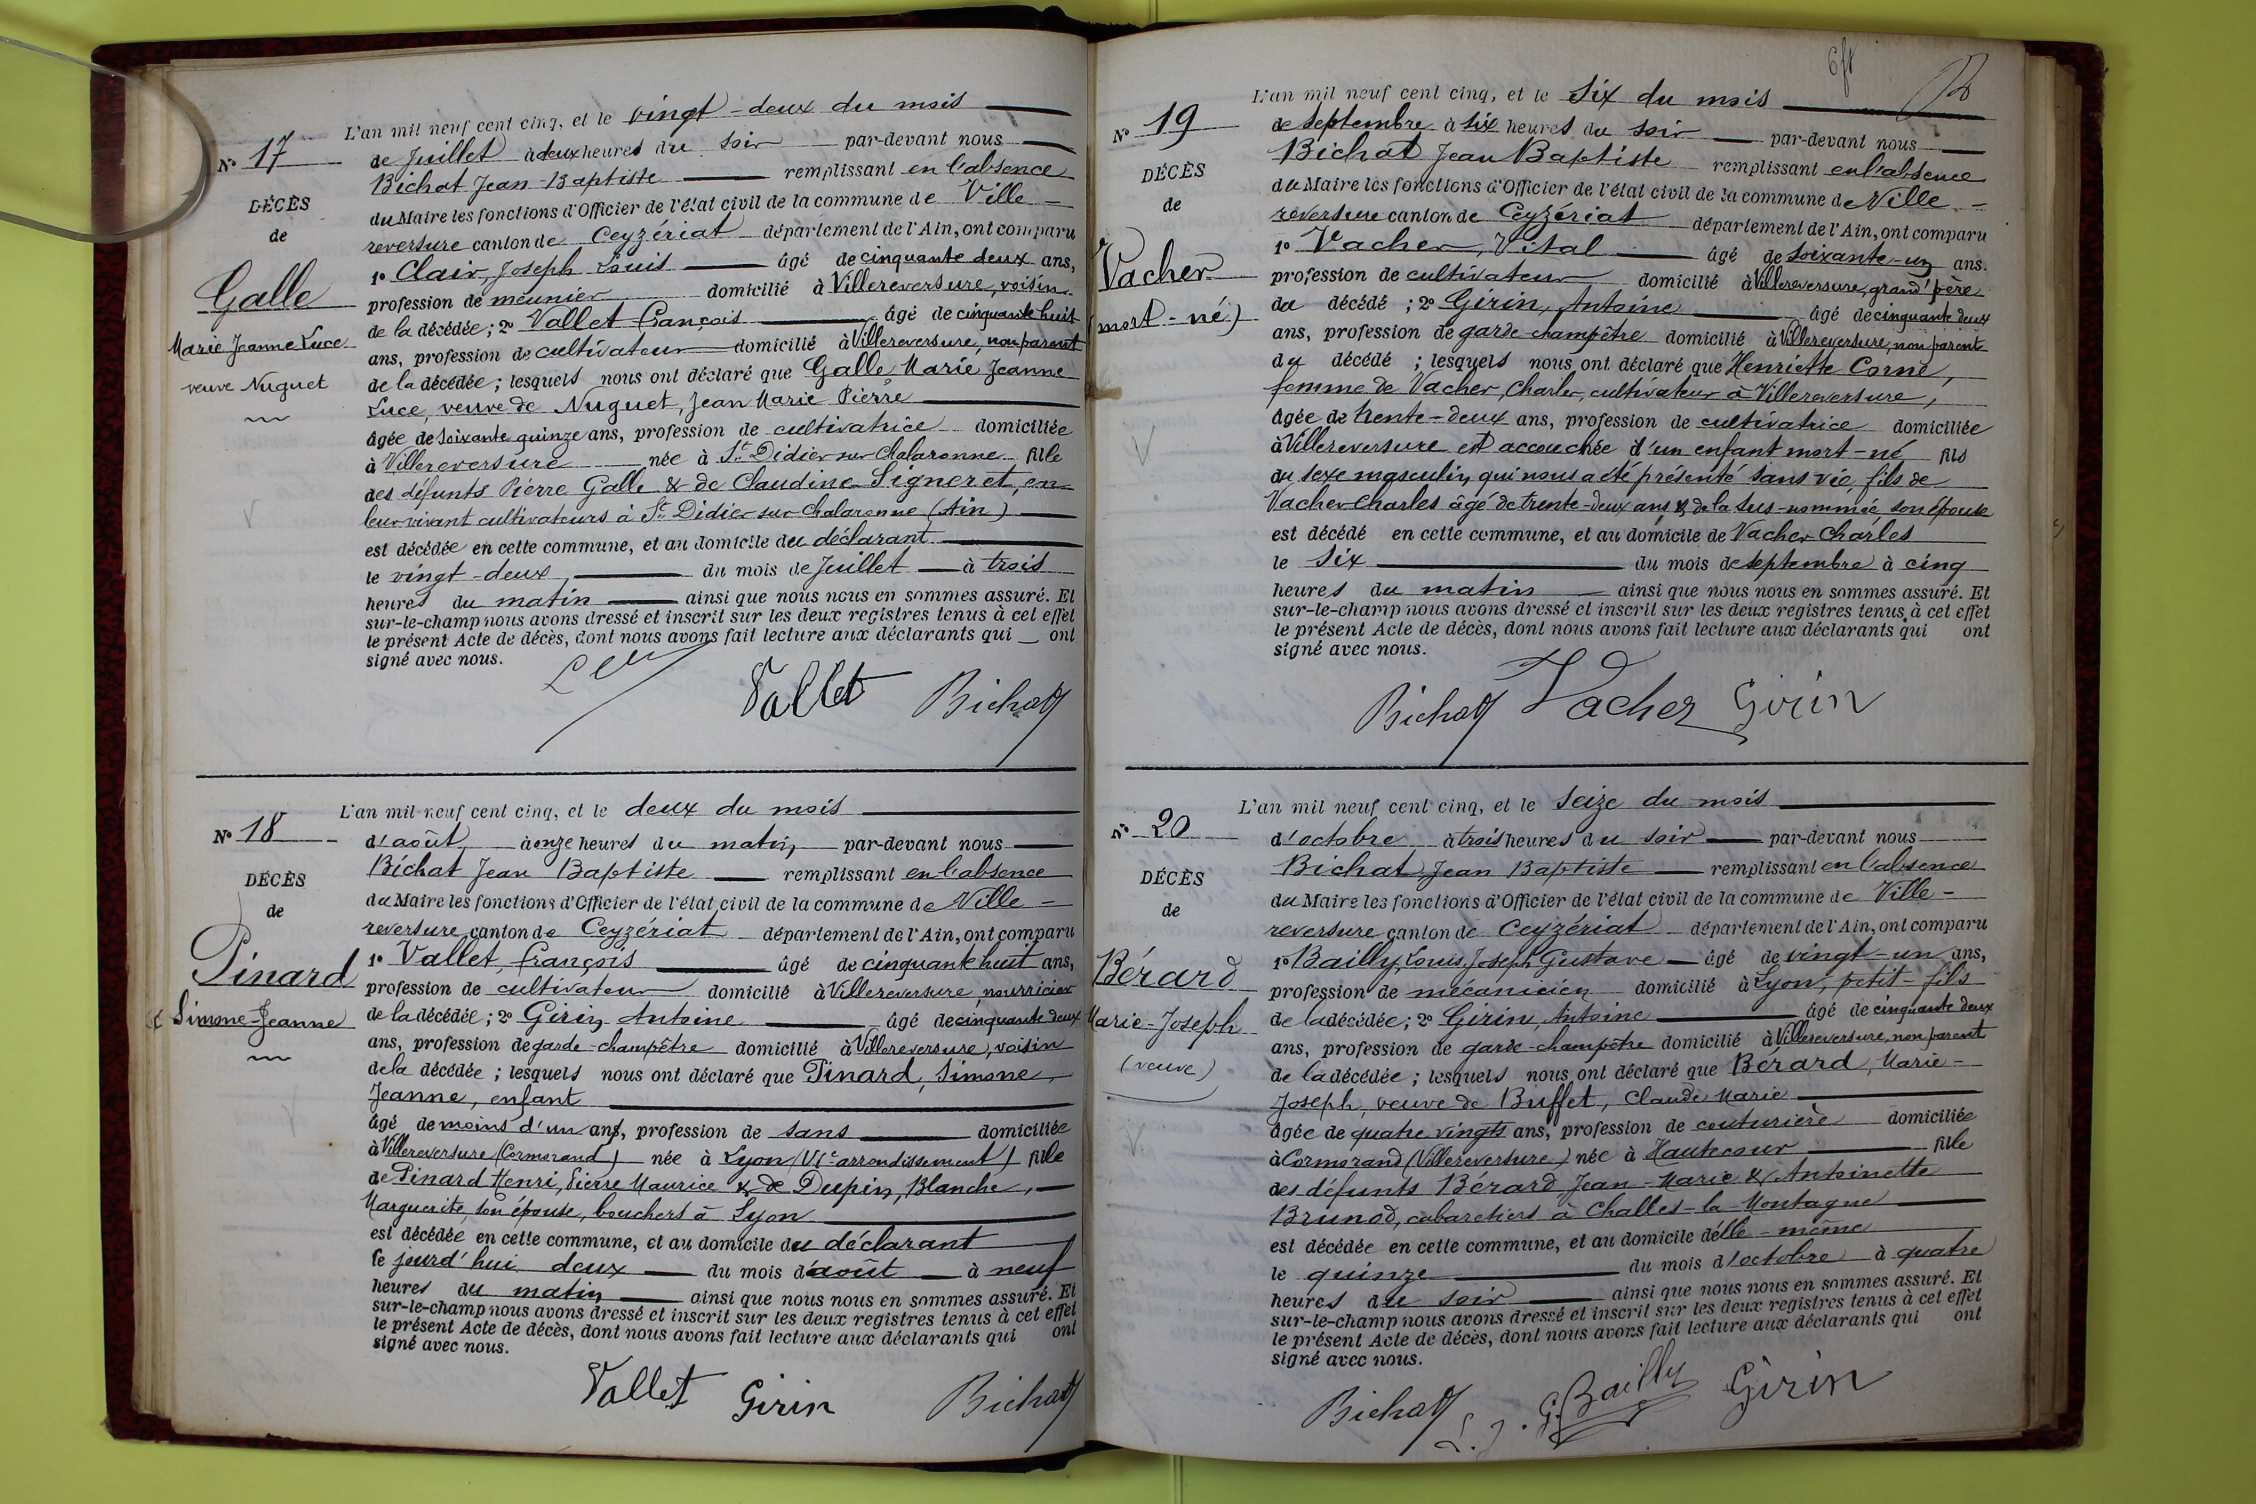 L'an mil neuf cent cinq, et le vingt-deux du mois
N° 17
de Juillet à deux heures du soir par-devant nous
Bichat Jean-Baptiste remplissant en l'absence
DÉCÈS
du Maire les fonctions d'Officier de l'état civil de la commune de Ville-
de
reversure canton de Ceyzériat département de l'Ain, ont comparu
1° Clair, Joseph Louis âgé de cinquante deux ans,
Galle
profession de meunier domicilié à Villereversure, voisin
de la décédée ; 2° Vallet François âgé de cinquante huit
Marie Jeanne Luce
ans, profession de cultivateur domicilié à Villereversure, non parent
veuve Nuguet
de la décédée ; lesquels nous ont déclaré que Galle Marie Jeanne
Luce, veuve de Nuguet, Jean Marie Pierre
âgée de soixante quinze ans, profession de cultivatrice domiciliée
à Villereversure née à St Didier sur Chalaronne fille
des défunts Pierre Galle & de Claudine Signeret, en
leur vivant cultivateurs à St Didier sur Chalaronne (Ain)
est décédée en cette commune, et au domicile du déclarant
le vingt-deux, du mois de Juillet à trois
heures du matin ainsi que nous nous en sommes assuré. Et
sur-le-champ nous avons dressé et inscrit sur les deux registres tenus à cet effet
le présent Acte de décès, dont nous avons fait lecture aux déclarants qui ont
signé avec nous.
Vallet Bichat
L'an mil neuf cent cinq, et le deux du mois
N° 18
d'août, à onze heures du matin par-devant nous
Bichat Jean Baptiste remplissant en l'absence
DÉCÈS
du Maire les fonctions d'Officier de l'état civil de la commune de Ville-
de
reversure canton de Ceyzériat département de l'Ain, ont comparu
1° Vallet, François âgé de cinquante huit ans,
Pinard
profession de cultivateur domicilié à Villereversure, nourricier
Simone-Jeanne
de la décédée ; 2° Girin Antoine âgé de cinquante deux
ans, profession de garde-champêtre domicilié à Villereversure, voisin
de la décédée ; lesquels nous ont déclaré que Pinard, Simone,
Jeanne, enfant
âgé de moins d'un ans, profession de sans domiciliée
à Villereversure (Cormorand) née à Lyon (VIe arrondissement) fille
de Pinard Henri, Pierre Maurice & de Dupin, Blanche,
Marguerite, son épouse, bouchers à Lyon
est décédée en cette commune, et au domicile du déclarant
le jourd'hui deux du mois d'août à neuf
heures du matin ainsi que nous nous en sommes assuré. Et
sur-le-champ nous avons dressé et inscrit sur les deux registres tenus à cet effet
le présent Acte de décès, dont nous avons fait lecture aux déclarants qui ont
signé avec nous.
Vallet Girin Bichat
L'an mil neuf cent cinq, et le six du mois
N° 19
de septembre à six heures du soir par-devant nous
Bichat Jean Baptiste remplissant en l'absence
DÉCÈS
du Maire les fonctions d'Officier de l'état civil de la commune de Ville-
de
reversure canton de Ceyzériat département de l'Ain, ont comparu
1° Vacher, Vital âgé de soixante-un ans.
Vacher
profession de cultivateur domicilié à Villereversure, grand'père
du décédé ; 2° Girin, Antoine âgé de cinquante deux
(mort-né)
ans, profession de garde champêtre domicilié à Villereversure, non parent
du décédé ; lesquels nous ont déclaré que Henriette Corne,
femme de Vacher, Charles, cultivateur à Villereversure,
âgée de trente-deux ans, profession de cultivatrice domiciliée
à Villereversure est accouchée d'un enfant mort-né fils
du sexe masculin, qui nous a été présenté sans vie, fils de
Vacher Charles âgé de trente-deux ans & de la sus-nommée son épouse
est décédé en cette commune, et au domicile de Vacher Charles
le six du mois de septembre à cinq
heures du matin ainsi que nous nous en sommes assuré. Et
sur-le-champ nous avons dressé et inscrit sur les deux registres tenus à cet effet
le présent Acte de décès, dont nous avons fait lecture aux déclarants qui ont
signé avec nous.
Bichat Vacher Girin
L'an mil neuf cent cinq, et le seize du mois
N° 20
d'octobre à trois heures du soir par-devant nous
Bichat Jean Baptiste remplissant en l'absence
DÉCÈS
du Maire les fonctions d'Officier de l'état civil de la commune de Ville-
de
reversure canton de Ceyzériat département de l'Ain, ont comparu
1° Bailly, Louis, Joseph Gustave âgé de vingt-un ans,
Bérard
profession de mécanicien domicilié à Lyon, petit-fils
Marie-Joseph
de la décédée ; 2° Girin, Antoine âgé de cinquante deux
ans, profession de garde-champêtre domicilié à Villereversure, non parent
(veuve)
de la décédée ; lesquels nous ont déclaré que Bérard, Marie-
Joseph, veuve de Buffet, Claude Marie
âgée de quatre vingts ans, profession de couturière domiciliée
à Cormorand (Villereversure) née à Hautecour fille
des défunts Bérard Jean-Marie & Antoinette
Brunod, cabaretiers à Challes-la-Montagne
est décédée en cette commune, et au domicile d'elle-même
le quinze du mois d'octobre à quatre
heures du soir ainsi que nous nous en sommes assuré. Et
sur-le-champ nous avons dressé et inscrit sur les deux registres tenus à cet effet
le présent Acte de décès, dont nous avons fait lecture aux déclarants qui ont
signé avec nous.
Bichat L. J. G. Bailly Girin